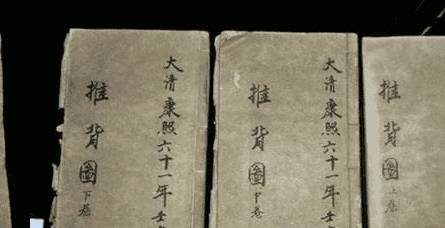 推背圖上卷
大清康熙六十一年壬
推背圖中卷
大清康熙六十一年壬
推背圖下卷